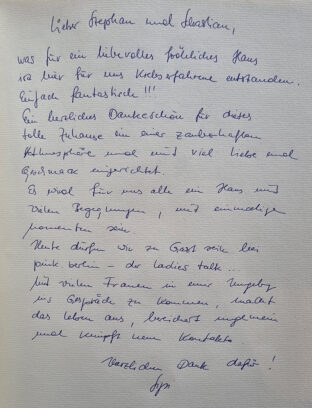 Lieber Stephan und Sebastian,
was für ein liebevolles fröhliches Haus
ist hier für uns Krebserfahrene entstanden.
Einfach fantastisch!!!
Ein herzliches Dankeschön für dieses
tolle Zuhause in einer zauberhaften
Athmosphäre und mit viel Liebe und
Geschmack eingerichtet.
Es wird für uns alle ein Haus mit
vielen Begegnungen, mit einmaligen
Momenten sein.
Heute dürfen wir zu Gast sein bei
pink berlin - der ladies talk..
Mit vielen Frauen in einer Umgebung
ins Gespräch zu kommen, macht
das Leben aus, bereichert ungemein
und knüpft neue Kontakte
Herzlichen Dank dafür!